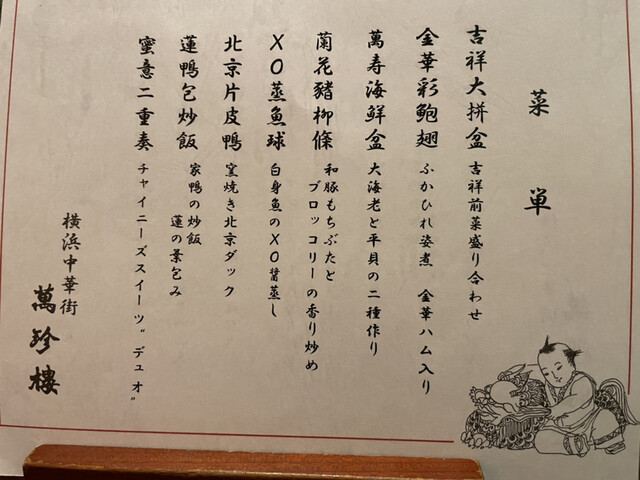 菜単
吉祥大拼盆 吉祥前菜盛り合わせ
金華彩鮑翅 ふかひれ姿煮 金華ハム入り
萬寿海鮮盆 大海老と平貝の二種作り
蘭花豬柳條 和豚もちぶたと
ブロッコリーの香り炒め
XO蒸魚球 白身魚のXO醤蒸し
北京片皮鴨 窯焼き北京ダック
蓮鴨包炒飯 家鴨の炒飯
蓮の葉包み
蜜意二重奏 チャイニーズスイーツ“デュオ”
横浜中華街
萬珍樓